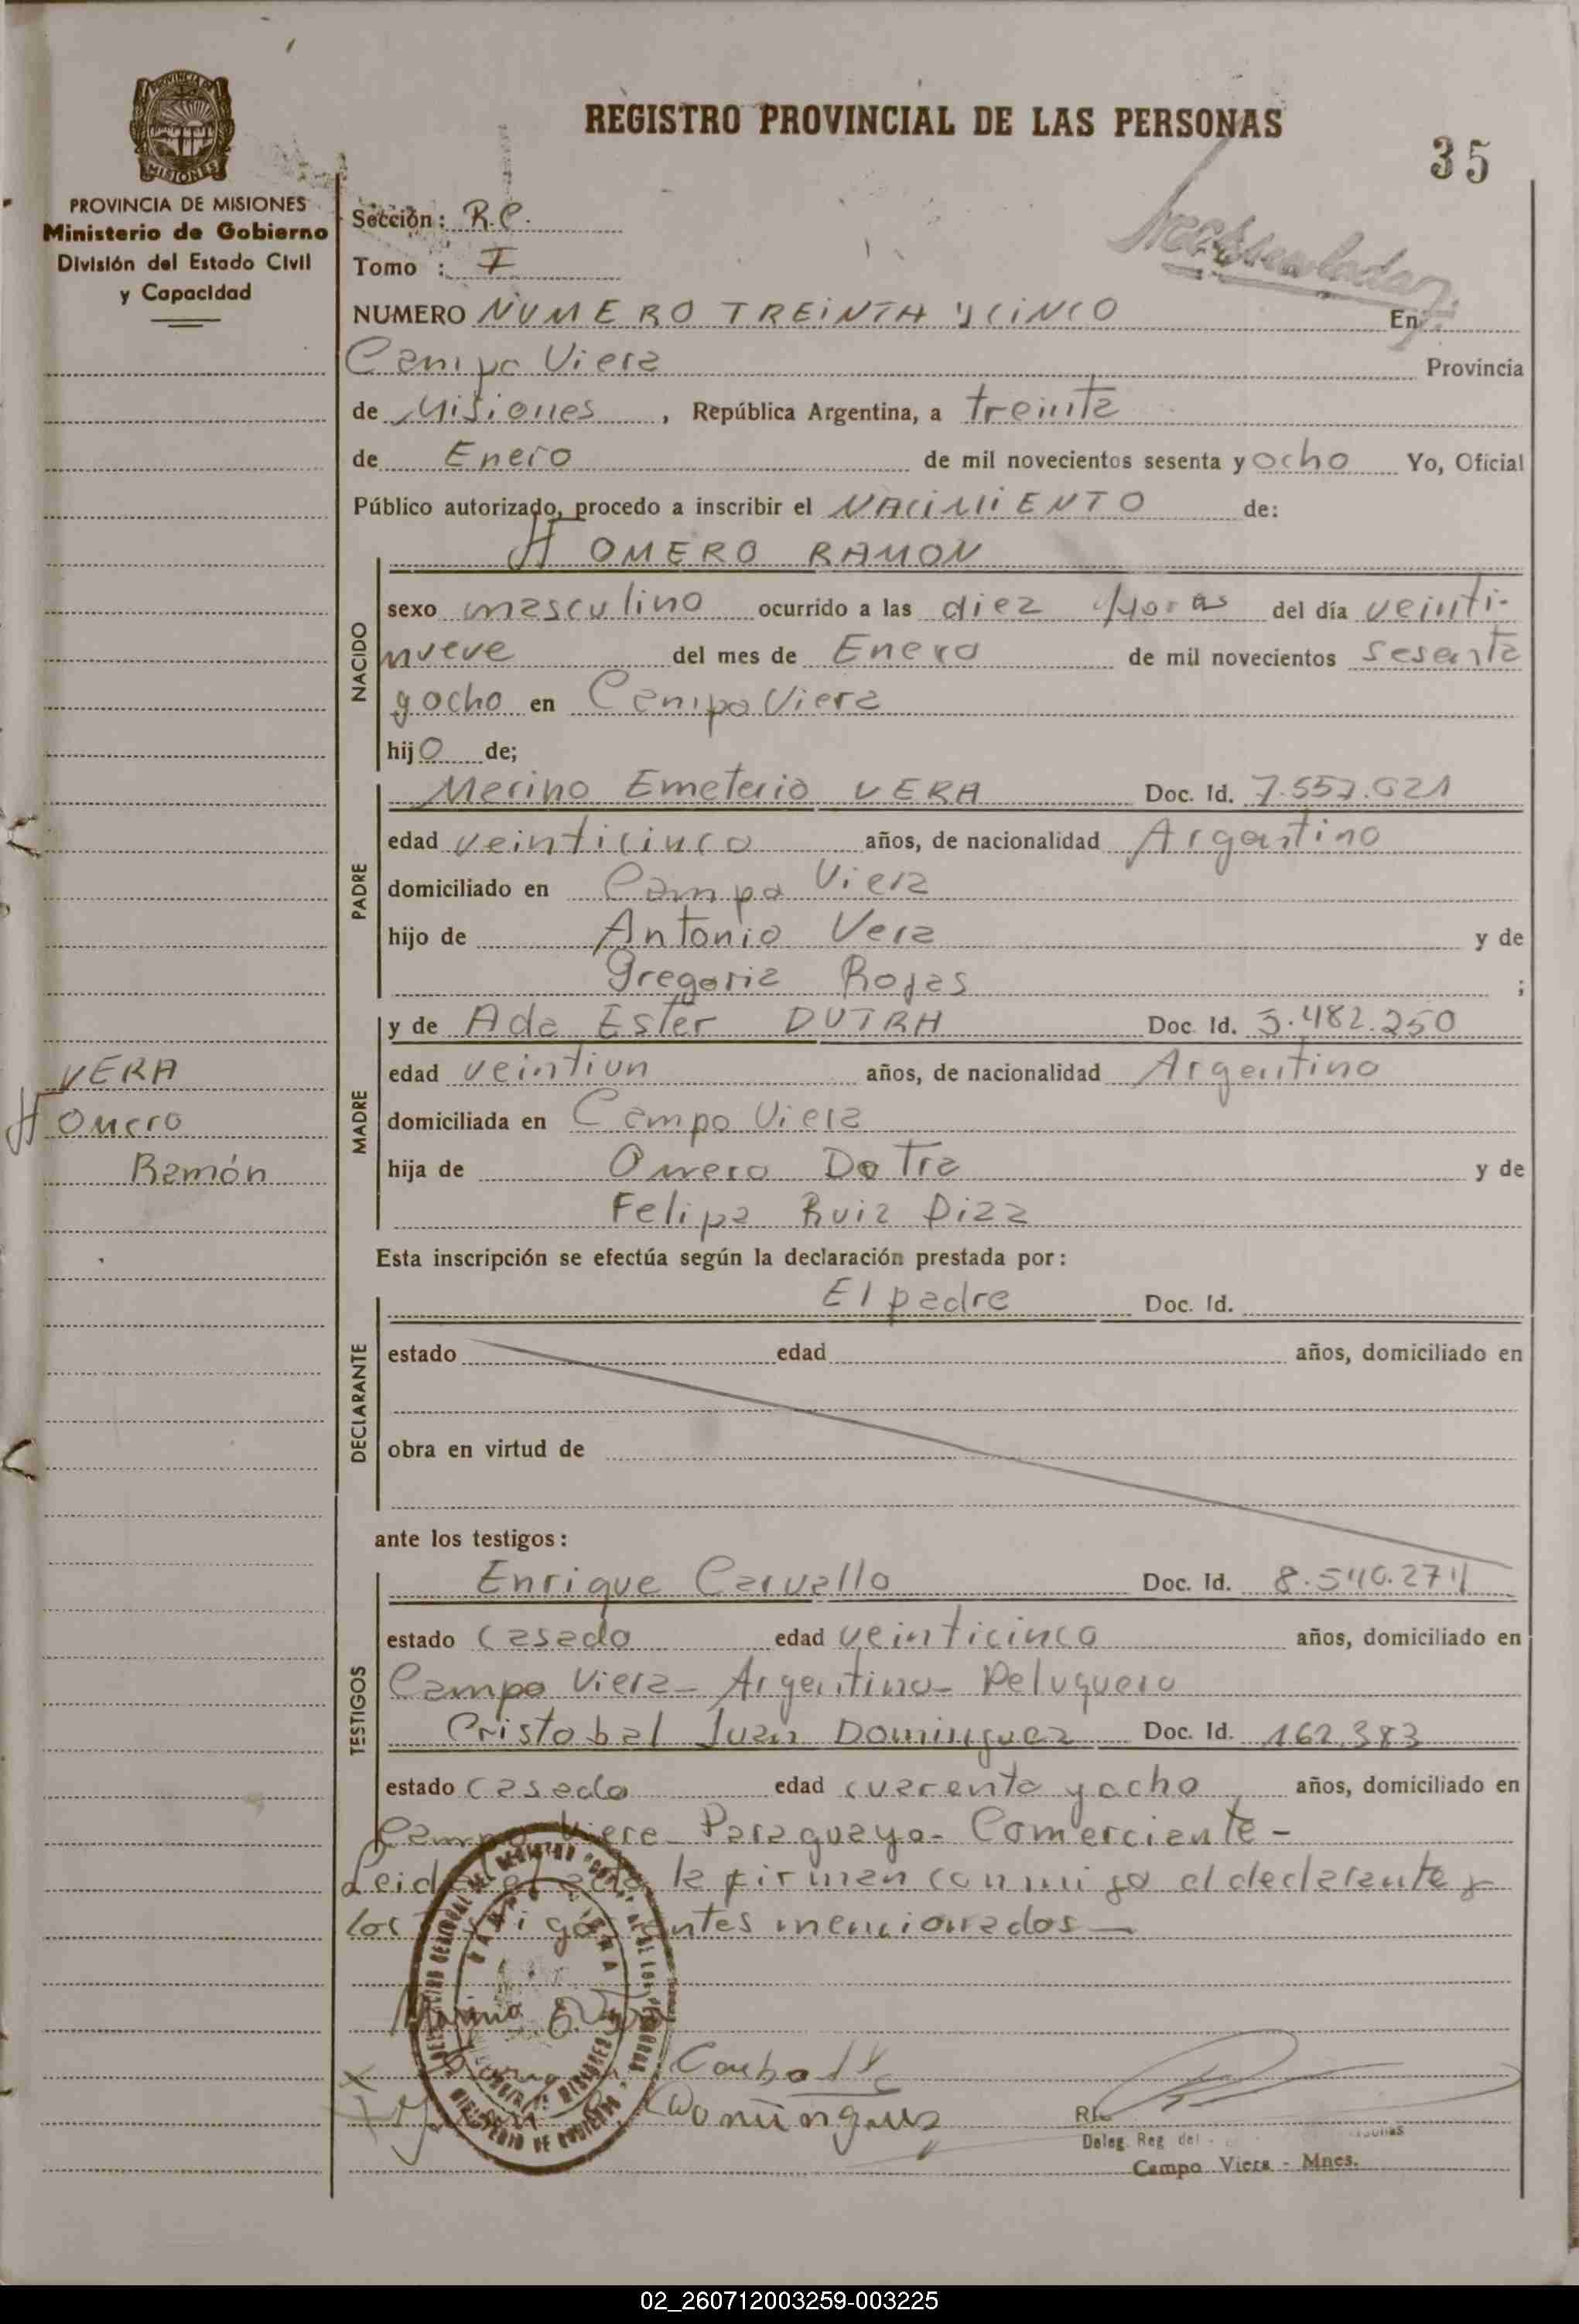 REGISTRO PROVINCIAL DE LAS PERSONAS
35
PROVINCIA DE MISIONES
MISIONES
PROVINCIA DE MISIONES
Ministerio de Gobierno
División del Estado Civil
y Capacidad
Sección: R.C.
Tomo : I
NUMERO NUMERO TREINTA Y CINCO En
Campo Viera Provincia
de Misiones, República Argentina, a treinta
de Enero de mil novecientos sesenta y ocho Yo, Oficial
Público autorizado, procedo a inscribir el NACIMIENTO de:
HOMERO RAMON
NACIDO
sexo masculino ocurrido a las diez Horas del día veinti-
nueve del mes de Enero de mil novecientos sesenta
y ocho en Campo Viera
hijo de;
PADRE
Merino Emeterio VERA Doc. Id. 7.557.621
edad veinticinco años, de nacionalidad Argentino
domiciliado en Campo Viera
hijo de Antonio Vera y de
Gregoria Rojas ;
MADRE
y de Ada Ester DUTRA Doc. Id. 5.482.250
edad veintiun años, de nacionalidad Argentino
domiciliada en Campo Viera
hija de Omero Do Tra y de
Felipa Ruiz Diaz
VERA
HOmero
Ramón
Esta inscripción se efectúa según la declaración prestada por:
DECLARANTE
El padre Doc. Id.
estado edad años, domiciliado en
obra en virtud de
ante los testigos:
TESTIGOS
Enrique Carvallo Doc. Id. 8.540.274
estado casado edad veinticinco años, domiciliado en
Campo Viera - Argentino - Peluquero
Cristobal Juan Dominguez Doc. Id. 162.383
estado casado edad cuarenta y ocho años, domiciliado en
Campo Viera - Paraguayo - Comerciante -
Leida el acta la firman conmigo el declarante y
los testigos antes mencionados —
Marino E.
Carballo
Dominguez
Deleg. Reg del
Campo Viera - Mnes.
02_260712003259-003225